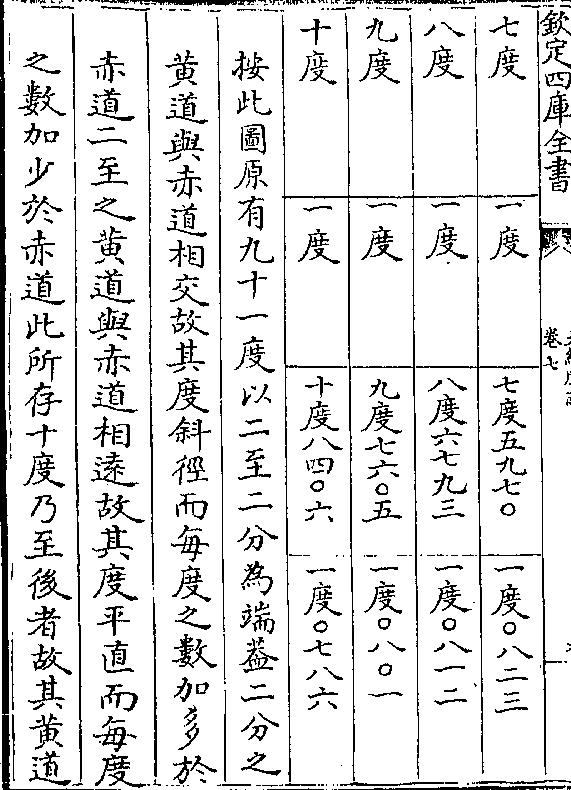 欽定四庫全書
卷七
七度 一度 七度五九七〇 一度〇八二三
八度 一度 八度六七九三 一度〇八一二
九度 一度 九度七六〇五 一度〇八〇一
十度 一度 十度八四〇六 一度〇七八六
按此圖原有九十一度以二至二分為端葢二分之
黄道與赤道相交故其度斜徑而每度之數加多於
赤道二至之黄道與赤道相遠故其度平直而每度
之數加少於赤道此所存十度乃至後者故其黄道